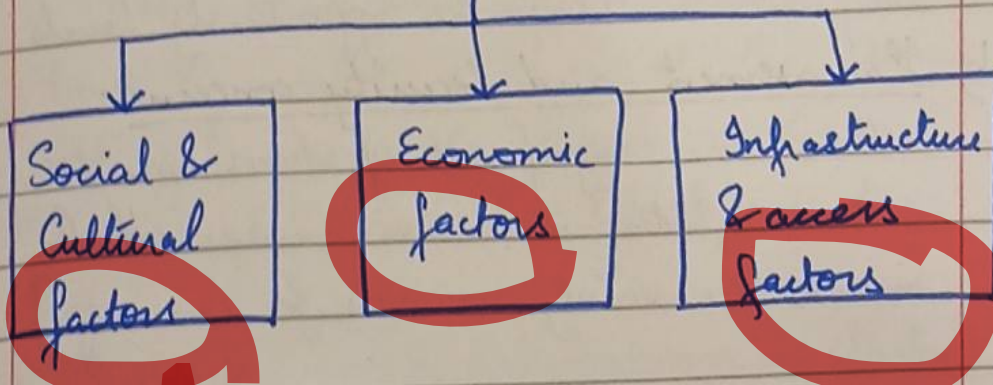 Social &
Cultural
factors
Economic
factors
Infrastructure
& access
factors